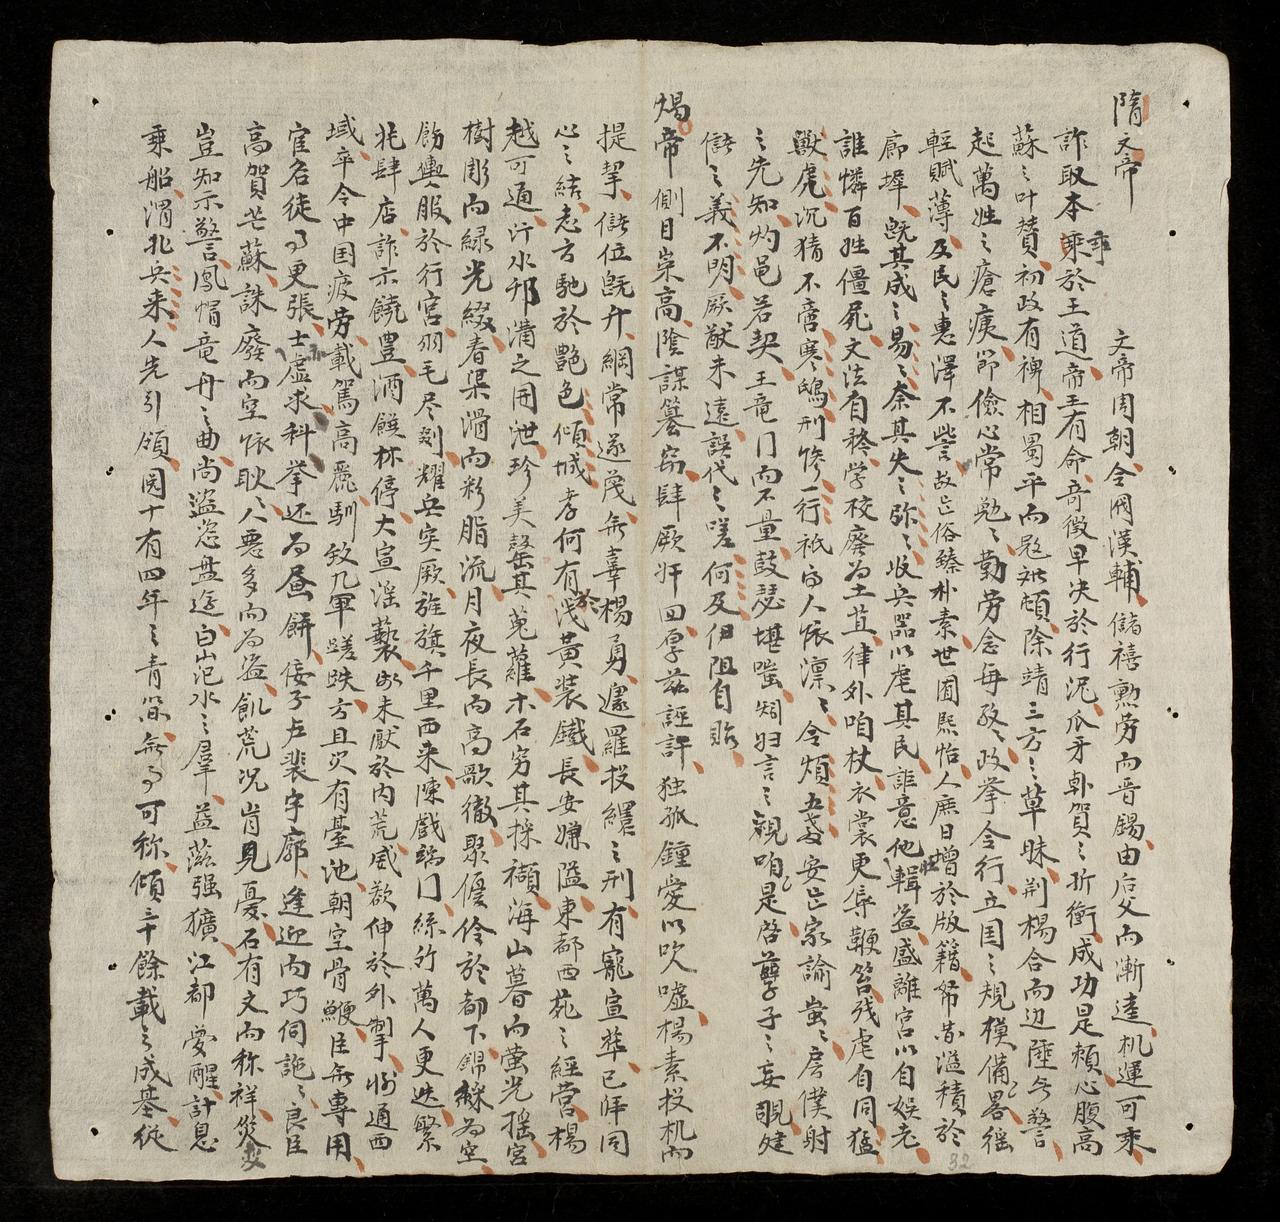 隋文帝　文帝周朝令閥漢輔儲禧勲劳而晋錫由后父而漸逵机運可乘
詐取本乖於王道帝王有命奇徴早决於行泥爪牙卦賀之折衝成功是頼心腹高
蘇之叶賛初政有裨相蜀平而尉頓除靖三方之草昧荊楊合而辺陲無警
起萬姓之瘡痍節儉心常勉勉勤劳念每孜孜政挙令行立国之規模備畧徭
輕賦薄及民之惠澤不訾故是俗臻朴素世囿熙怡人庶日增於版籍帑帛溢積於
廊墀既其成之易易奈其失之弥弥收兵器以虐其民誰意他輯盗盛離宮以自娱老
誰憐百姓僵屍文法自矜学校廢為土苴律外咱杖衣裳更辱鞭笞残虐自同猛
獸虎沉猜不啻寒鴟刑慘一行祇守人懷凛凛令煩五教安是家諭蚩蚩房僕射
之先知灼邑若契王竜门而不量鼓瑟堪嗤矧妇言之親咱是啓孽子之妄覗建
儲之義不明厥猷未遠誤代之嗟何及伊阻自貽
煬帝側目崇高陰謀簒窃肆厥奸回孚茲誣訐独孤鐘愛以吹嘘楊素投机而
提挈儲位既升綱常遂蔑無辜楊勇遽羅投繯之刑有寵宣華已拜同
心之結志方馳於艶色傾城孝何有於浅黄装鐵長安嫌隘東都西苑之經营楊
越可通汴水邗溝之開泄珍美罄其蒐羅木石穷其採擷海山暮而萤光摇宮
樹彫而緑光綴春渠滑而粉脂流月夜長而高歌徹聚優伶於都下錦綵為空
飭輿服於行宮羽毛尽剡耀兵突厥旌旗千里西来陳戲端门絲竹萬人更迭繁
兆肆店詐示饒豊酒饌杯停大宣滛藝欲未厭於内荒威欲伸於外掣衅通西
域卒令中国疲劳載駕高麗馴致几軍蹉跌方且災有臺池朝室骨鯁臣無專用
官名徒事更張士虚求科挙还为昼餅佞子占裴宇廓逢迎向巧伺訑訑良臣
高賀芒蘇誅廢而空懷耿耿人惡多而为盗飢荒况肯見憂石有文而称祥災变
豈知示警鳳帽竜舟之曲尚盗恣盘逸白山汜水之羣益滋强獷江都爱醒計息
乘船渭北兵来人先引領閲十有四年之青節無事可称傾三十餘載之成基従